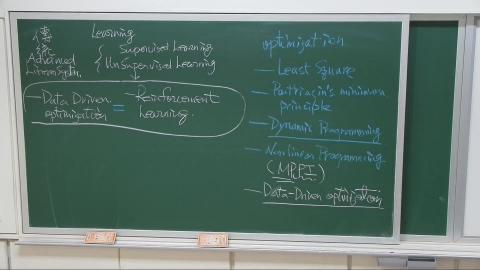 傳統
Advanced
Learning
Supervised Learning
UnSupervised Learning
— Data Driven
optimization
=
— Reinforcement
Learning.
optimization
— Least Square
— Pontriagin's minimum
principle
— Dynamic Programming
— Nonlinear Programming
(MPPI)
— Data-Driven optimization